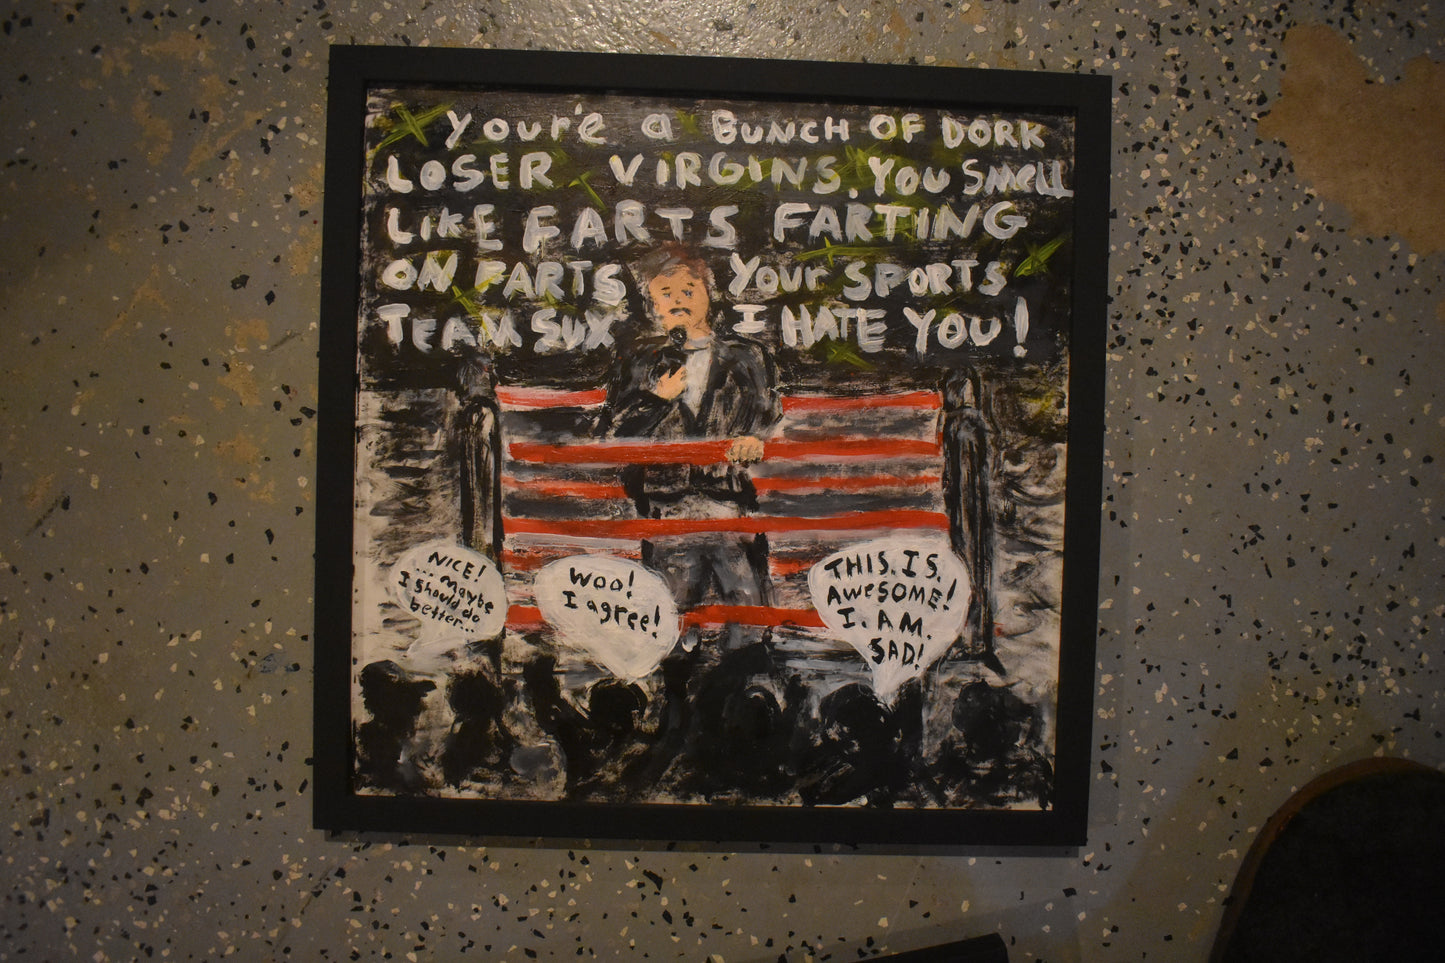 Your'e a BUNCH OF DORK
LOSER VIRGINS. YOU SMELL
LIKE FARTS FARTING
ON FARTS YOUR SPORTS
TEAM SUX I HATE YOU!
NICE!
...maybe
I should do
better...
WOO!
I agree!
THIS. IS.
AWeSOME!
I. AM.
SAD!